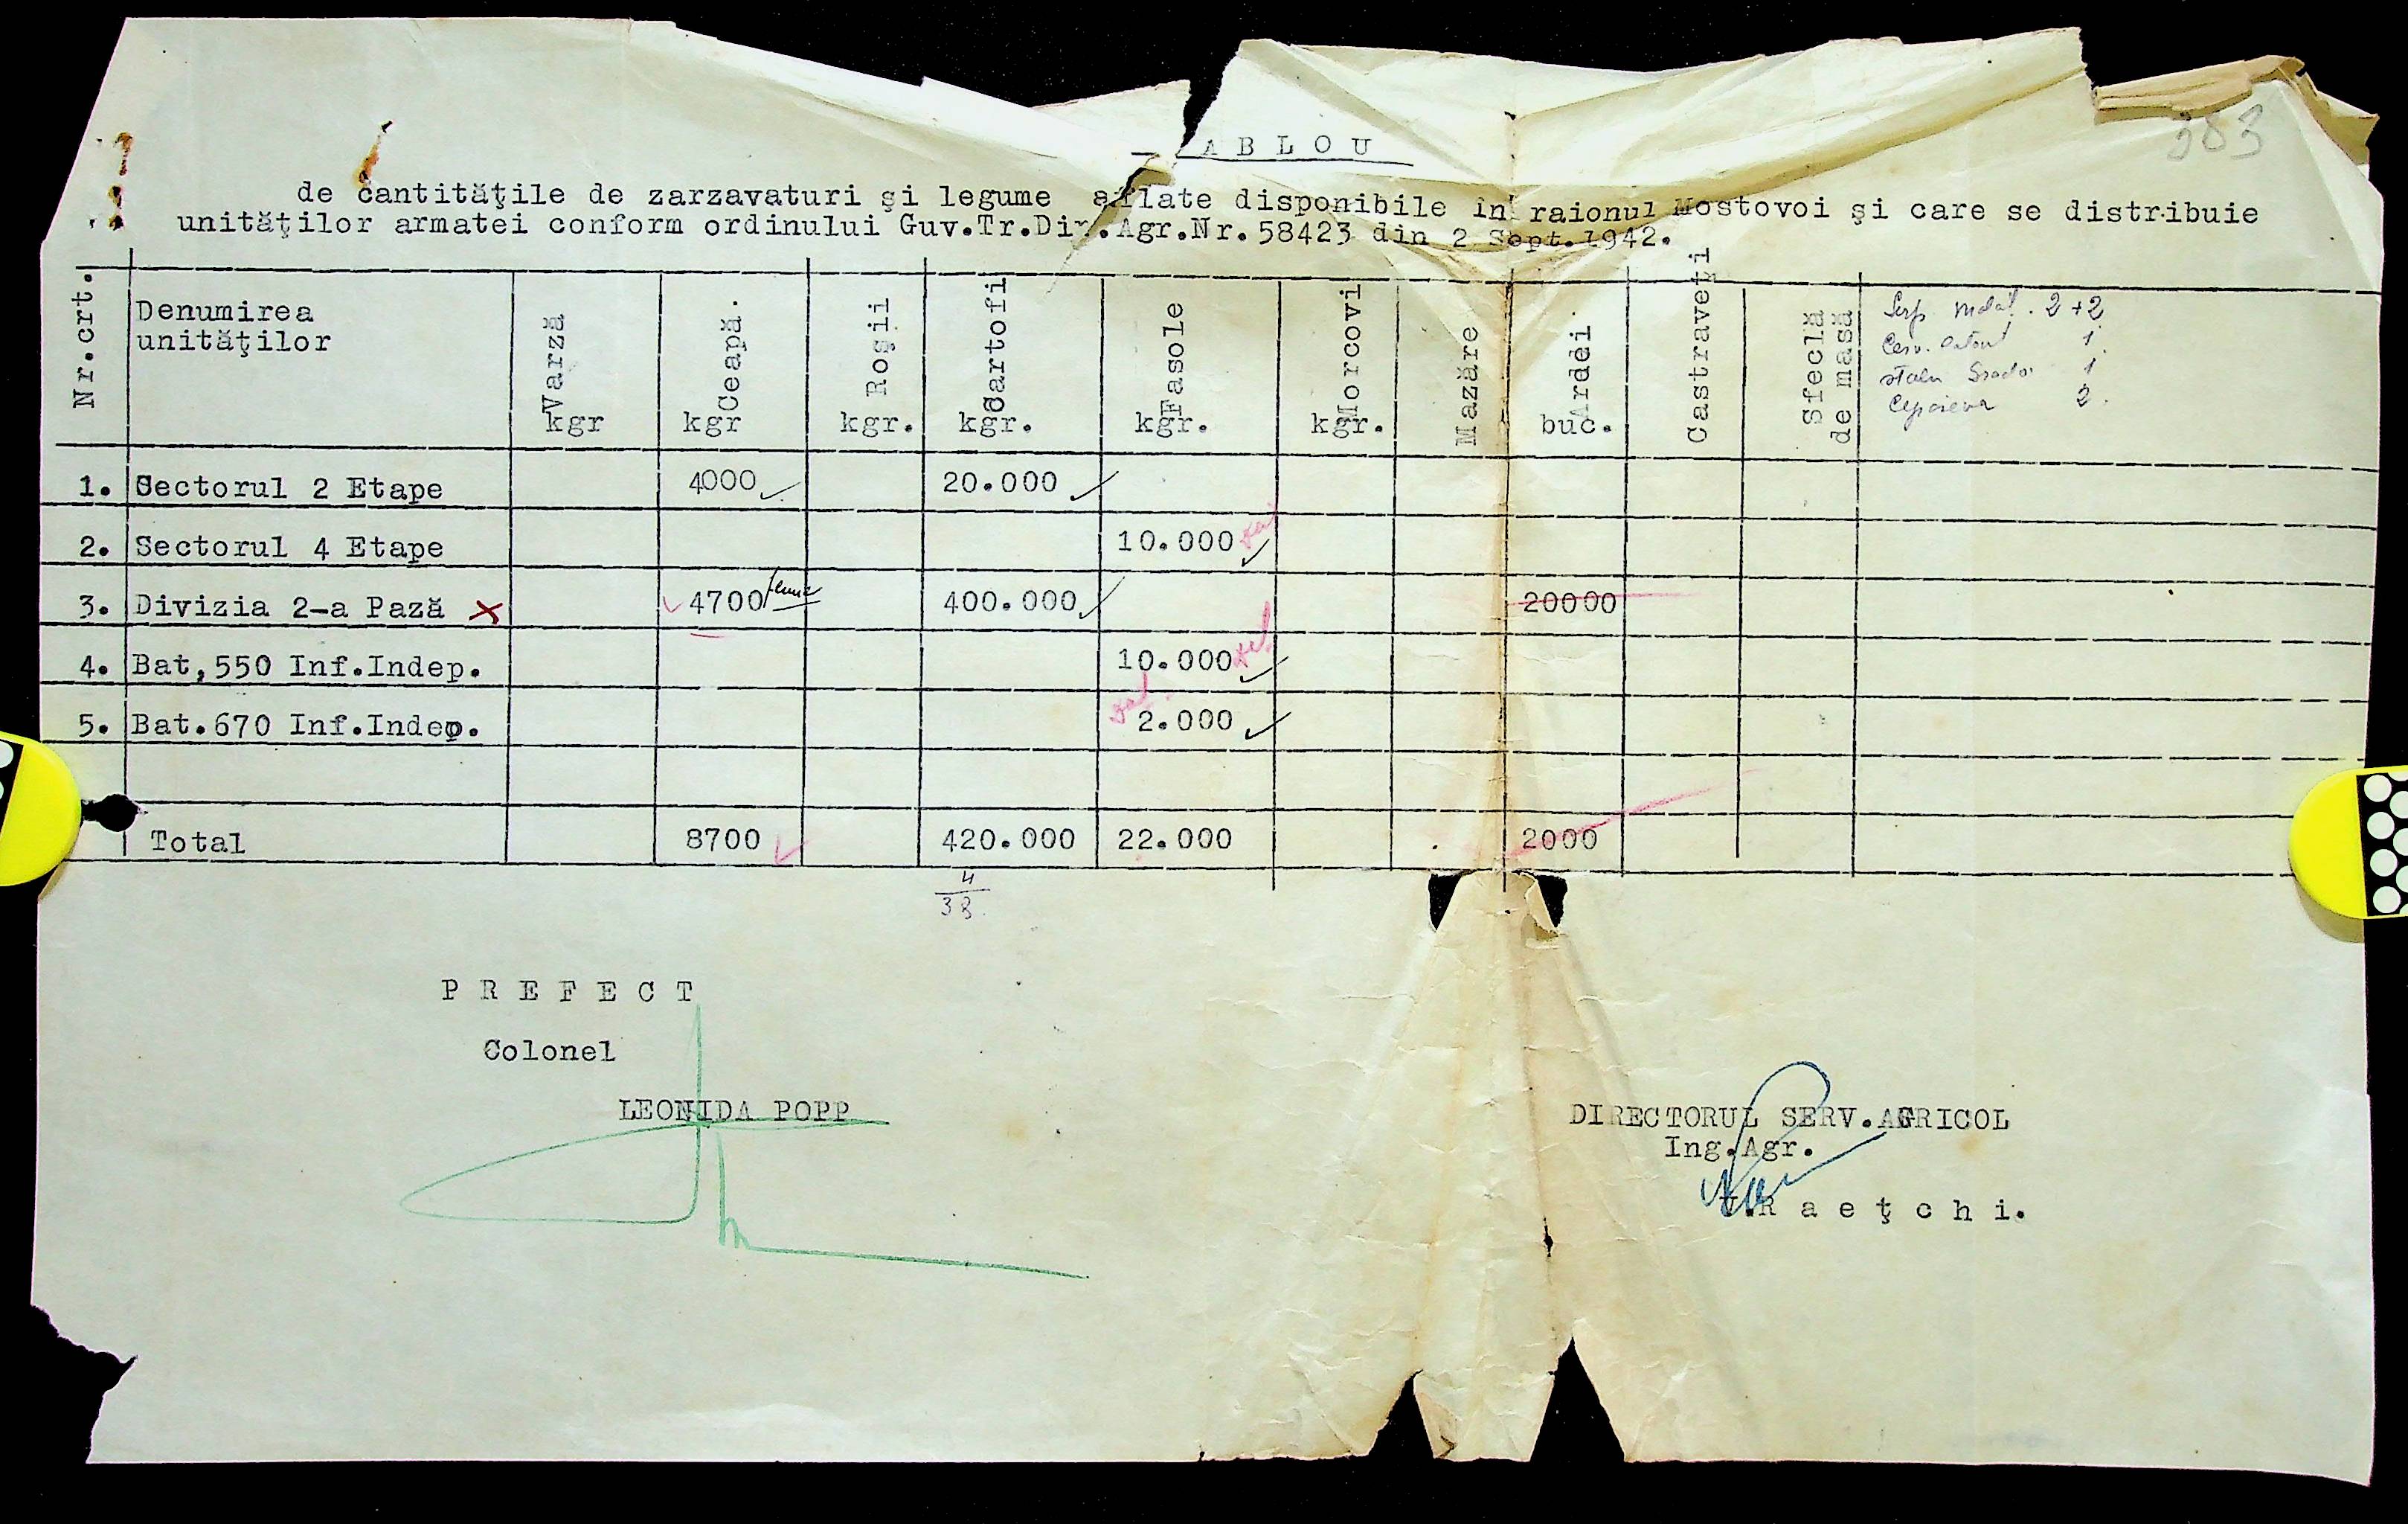 383
ABLOU
de cantităţile de zarzavaturi şi legume aflate disponibile în raionul Mostovoi şi care se distribuie
unităţilor armatei conform ordinului Guv.Tr.Dir.Agr.Nr.58423 din 2 Sept.1942.
Nr.crt. Denumirea unităţilor Varză kgr Ceapă. kgr Roşii kgr. Cartofi kgr. Fasole kgr. Morcovi kgr. Mazăre Ardei buc. Castraveţi Sfeclă de masă
2+2
1
1
2.
1. Sectorul 2 Etape 4000 20.000
2. Sectorul 4 Etape 10.000
3. Divizia 2-a Pază x 4700 400.000 20000
4. Bat,550 Inf.Indep. 10.000
5. Bat.670 Inf.Indep. 2.000
Total 8700 420.000 22.000 2000
4
38.
PREFECT
Colonel
LEONIDA POPP
DIRECTORUL SERV.AGRICOL
Ing.Agr.
V.Raeţchi.